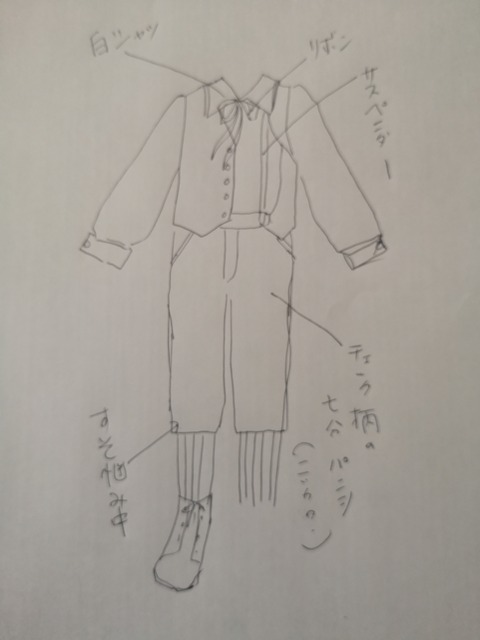 白シャツ
リボン
サスペンダー
チェック柄の
七分パンツ
すそ悩み中